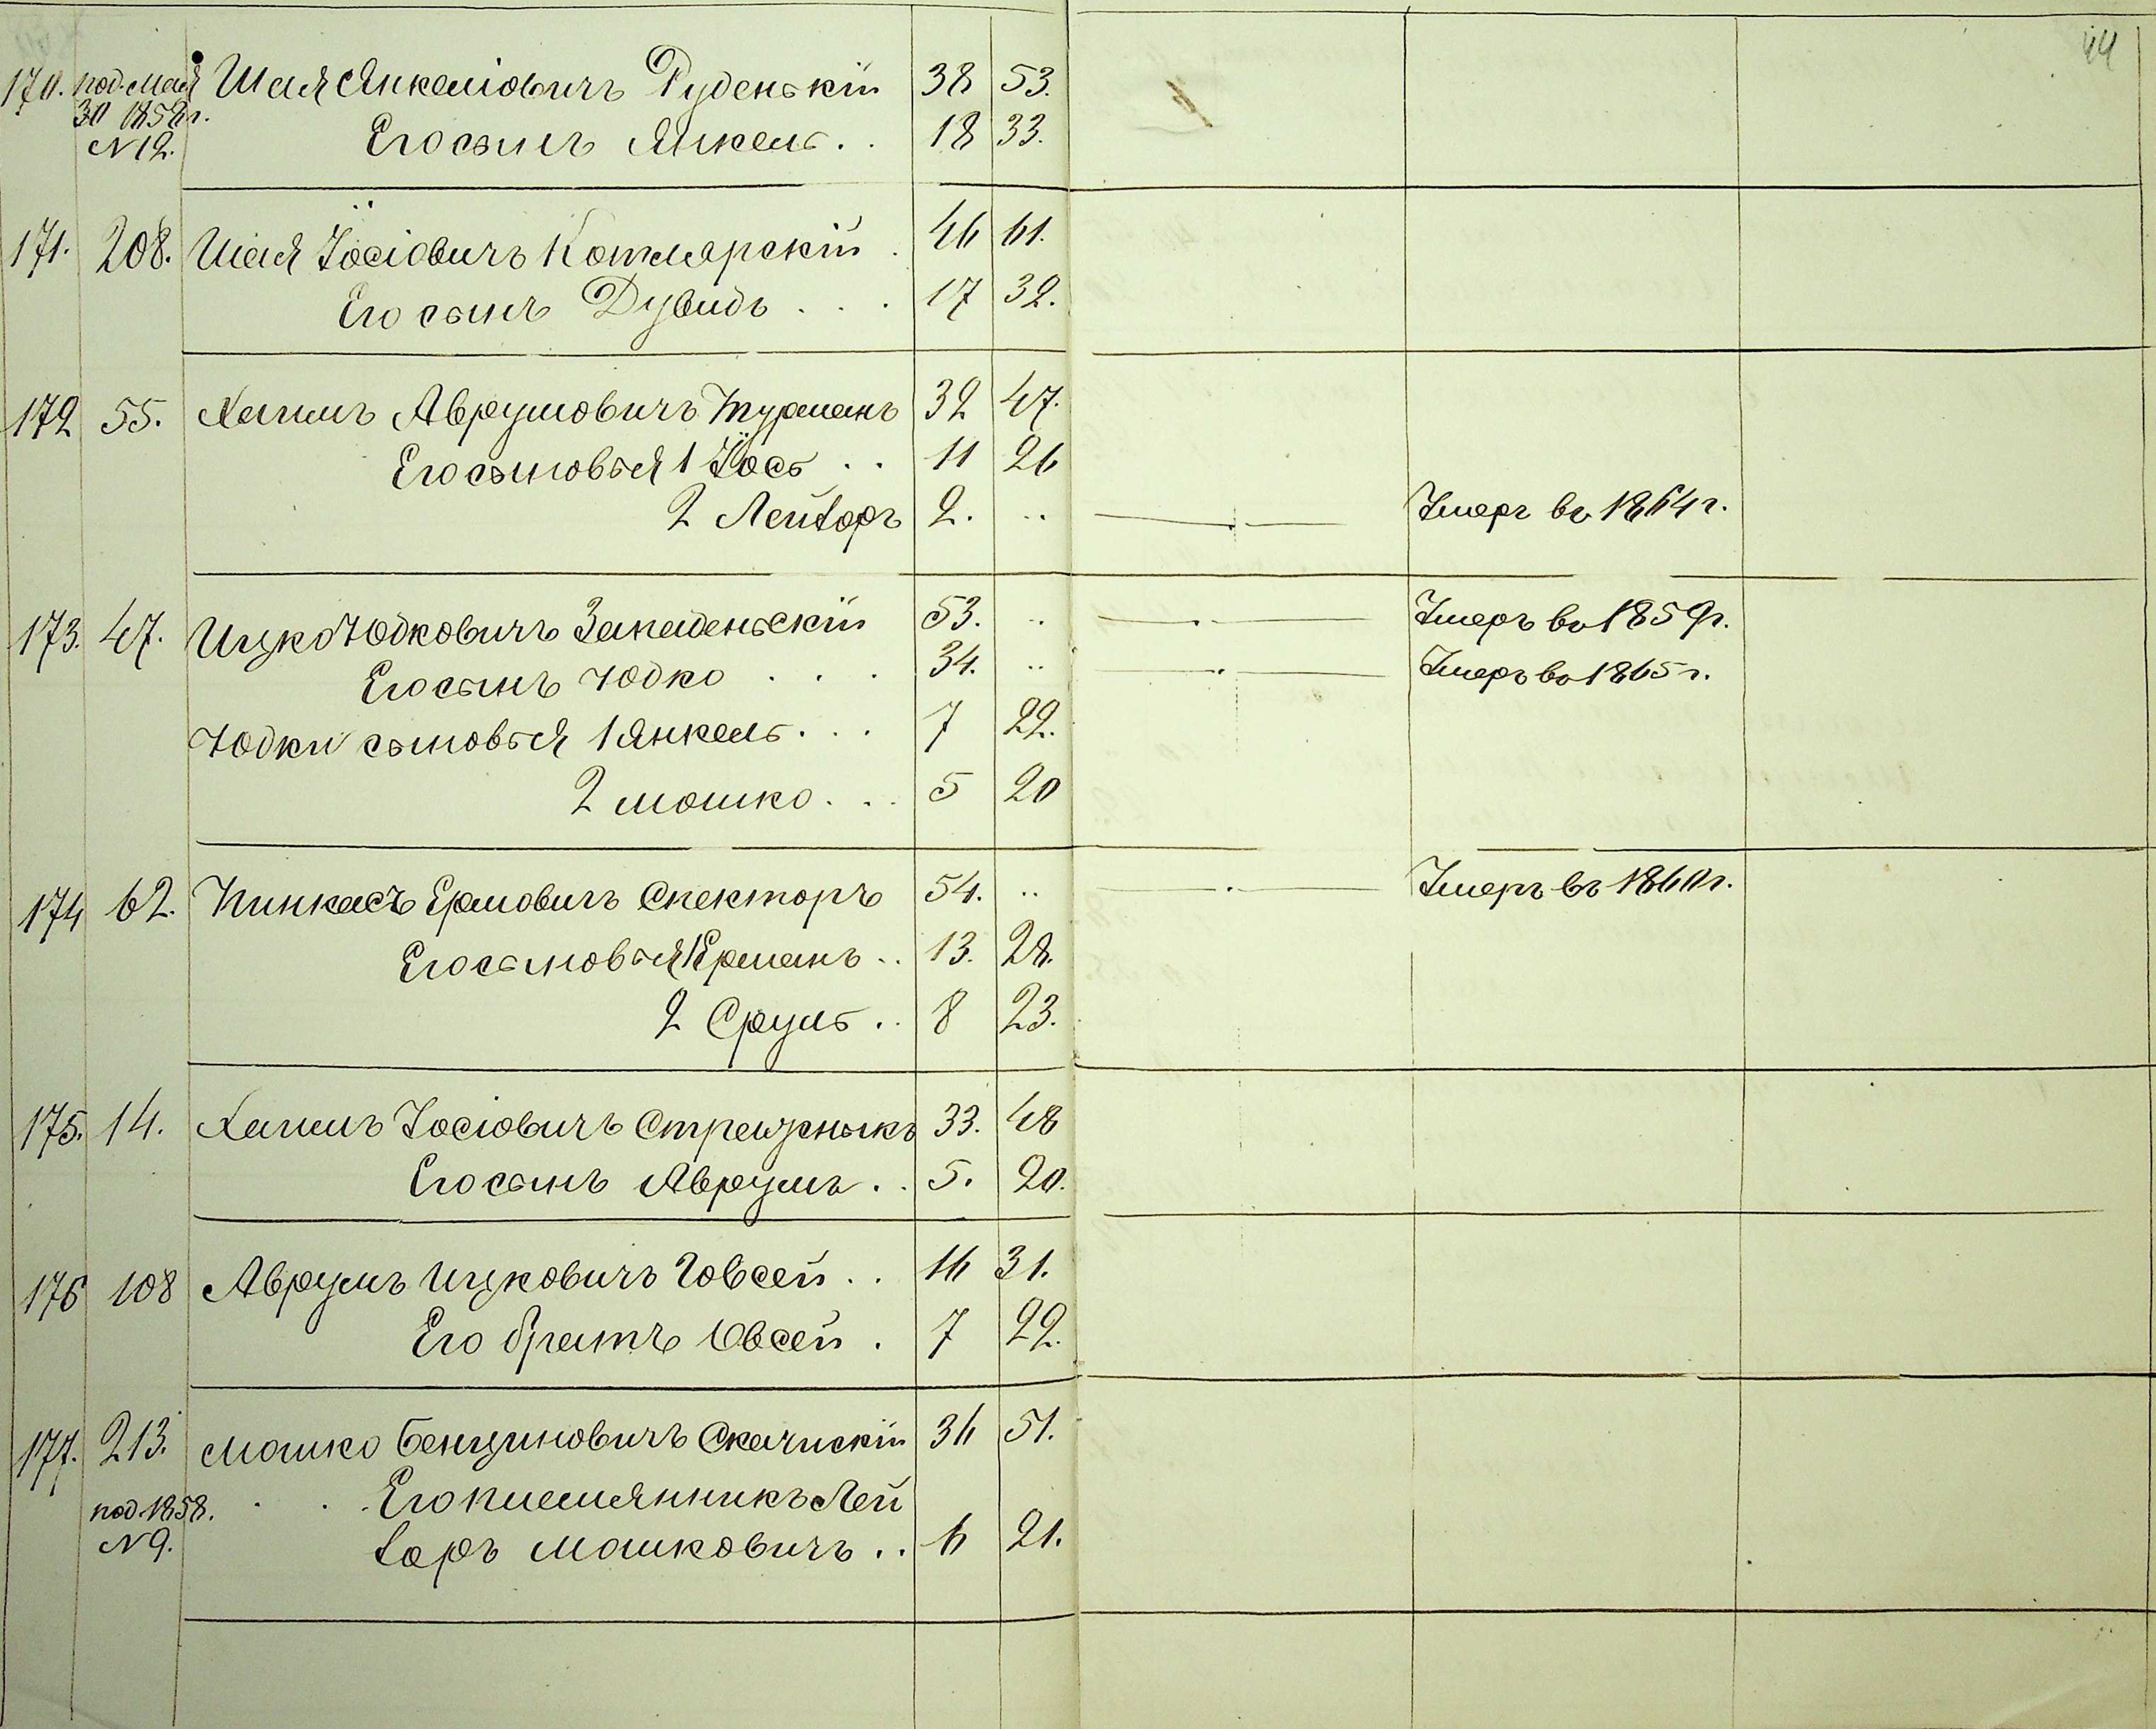 44
170. под. Мая Шая Янкеліовичъ Руденькій 38 53.
30 1858 г. Его сынъ Янкель . . 18 33.
N 12.
171. 208. Шая Іосіовичъ Котлярскій . 46 61.
Его сынъ Дувидъ . . . 17 32.
172 55. Хаимъ Аврумовичъ Турманъ 32 47.
Его сыновья 1 Іось . . 11 26
2 Лейзоръ 2. .. Умеръ въ 1864 г.
173. 47. Ицко Юдковичъ Западеньскій 53. .. Умеръ въ 1859 г.
Его сынъ Юдко . . . 34. .. Умеръ въ 1865 г.
Юдки сыновья 1 Янкель . . . 7 22.
2 Мошко . . . 5 20
174 62. Пинкасъ Ермовичъ Спекторъ 54. .. Умеръ въ 1860 г.
Его сыновья 1 Ерманъ . . 13. 28.
2 Сруль . . 8 23.
175. 14. Хаимъ Іосіовичъ Стрежныкъ 33. 48
Его сынъ Аврумъ . . 5. 20.
176 108 Аврумъ Ицковичъ Говсей . . 16 31.
Его братъ Овсей . 7 22.
177. 213. Мошко Бенціновичъ Скачискій 36 51.
под. 1858. . . . Его племянникъ Лей
N 9. зоръ Мошковичъ . . 6 21.